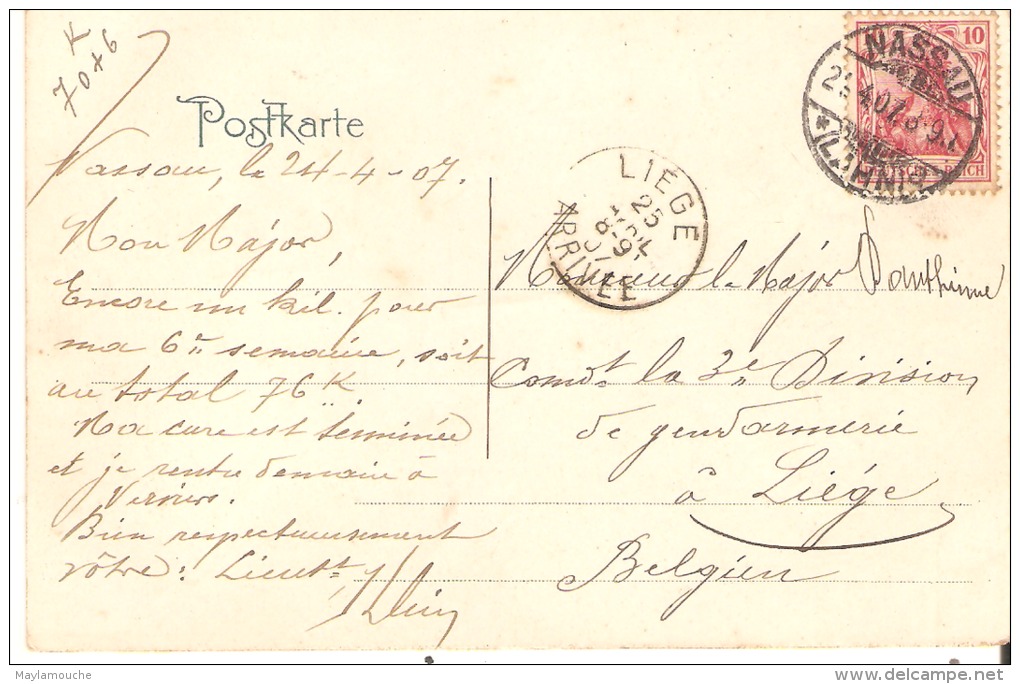 K
70+6
Postkarte
Nassau, le 24-4-07.
Mon Major,
Encore un kil. pour
ma 6e semaine, soit
au total 76 K.
Ma cure est terminée
et je rentre demain à
Verviers.
Bien respectueusement
vôtre: Lieutt
NASSAU
4.07.8-9
(LAHN)
10
REICH
LIÉGE
25
8-9
ARRIVÉE
Monsieur le Major
Comdt la 3e Division
de gendarmerie
à Liége
Belgien
Maylamouche
www.delcampe.net